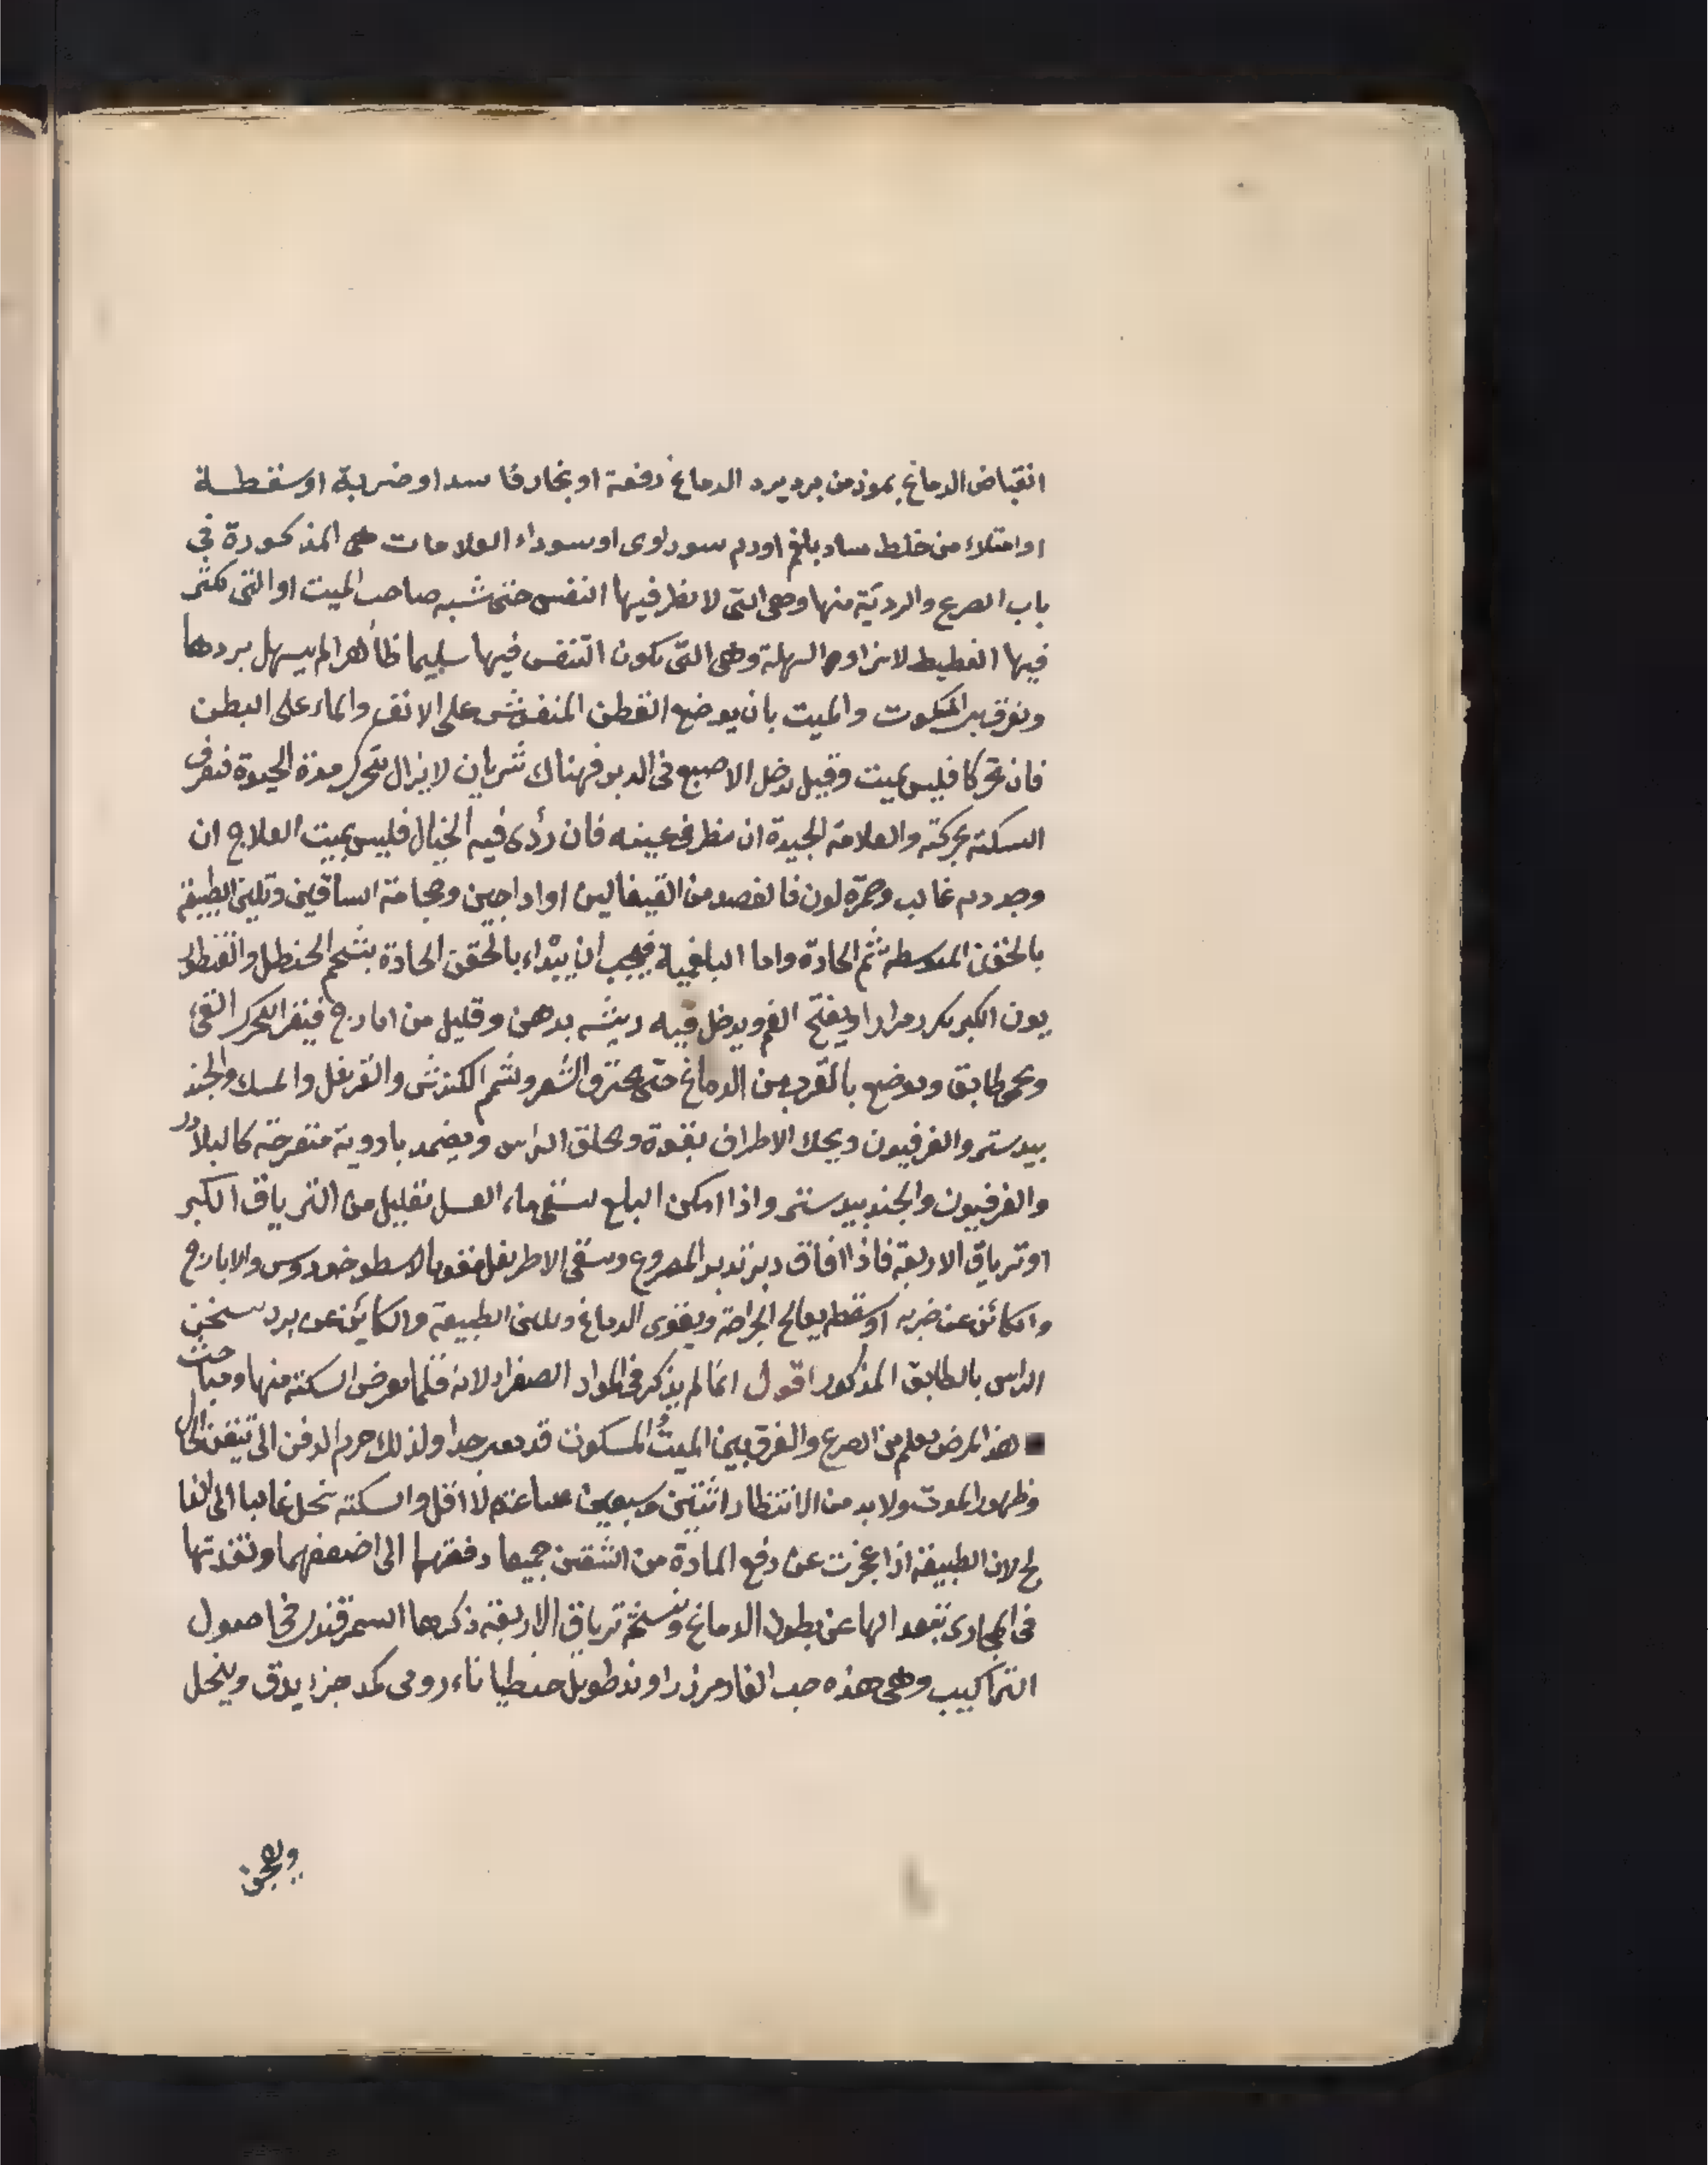 انقباض الدماغ بموذ من برد يرد الدماغ دفعة او بخار فاسد او ضربة او سقطة
او امتلاء من خلط ساد بلغم او دم سوداوى او سوداء العلامات هى المذكورة في
باب الصرع والردئة منها وهى التى لا يظهر فيها النفس حتى شبه صاحب الميت او التى تكثر
فيها الغطيط لا سزاوه السهلة وهى التى يكون التنفس فيها سليما ظاهرا لم يسهل بردها
ويفرق بين المسكوت والميت بان يوضع القطن المنفوش على الانف والماء على البطن
فان تحركا فليس بميت وقيل يدخل الاصبع فى الدبر فهناك شريان لا يزال يتحرك مدة الحيوة فيعرف
السكتة بحركته والعلامة الجيدة ان ينظر فى عينه فان رؤى فيه الخيال فليس بميت العلاج ان
وجد دم غالب وحمرة لون فالفصد من القيفالين او اداجين وحجامة الساقين وتليين الطبيعة
بالحقن المتوسطة ثم الحادة واما البلغمية فيجب ان يبداء بالحقن الحادة بشحم الحنظل والقنطور
يون الكبر يكرر مرارا او يفتح الفم ويدخل فيه ريشه بدهن وقليل من ايارج فيقرا لتحرك القئ
ويحمى طابق ويوضع بالقرب من الدماغ حتى يحترق الشعر ويشم الكندش والقرنفل والمسك والجند
بيدستر والفرفيون ويحك الاطراف بقوة ويحلق الراس ويضمد بادوية متقرحة كالبلادر
والفرفيون والجندبيدستر واذا امكن البلع يسقى ماء العسل بقليل من الترياق الكبر
او ترياق الاربعة فاذا افاق دبر تدبير المصروع ويسقى الاطريفل مقويا بالاسطوخودوس والايارج
والكائن عن ضربه او سقطه يعالج الجراحة ويقوى الدماغ ويلين الطبيعة والكائن عن برد يسخن
الراس بالطابق المذكور اقول انما لم يذكر فى المواد الصفراء لانه قلما يعرض السكتة منها ومباحث
هذا المرض يعلم من الصرع والفرق بين الميت والمسكوت قد يعسر جدا ولذلك حرم الدفن الى تيقن الحال
وظهور الموت ولا بد من الانتظار اثنتين وسبعين ساعة لا اقل والسكتة تنحل غالبا الى الفا
لج لان الطبيعة اذا عجزت عن دفع المادة من الشقين جميعا دفعتها الى اضعفهما ونفذتها
فى المجارى تبعد الها عن بطون الدماغ ونسخة ترياق الاربعة ذكرها السمرقندى فى اصول
التراكيب وهى هذه حب الغار مر زراوند طويل جنطيانا رومى كد جزء يدق وينخل
ويعجن